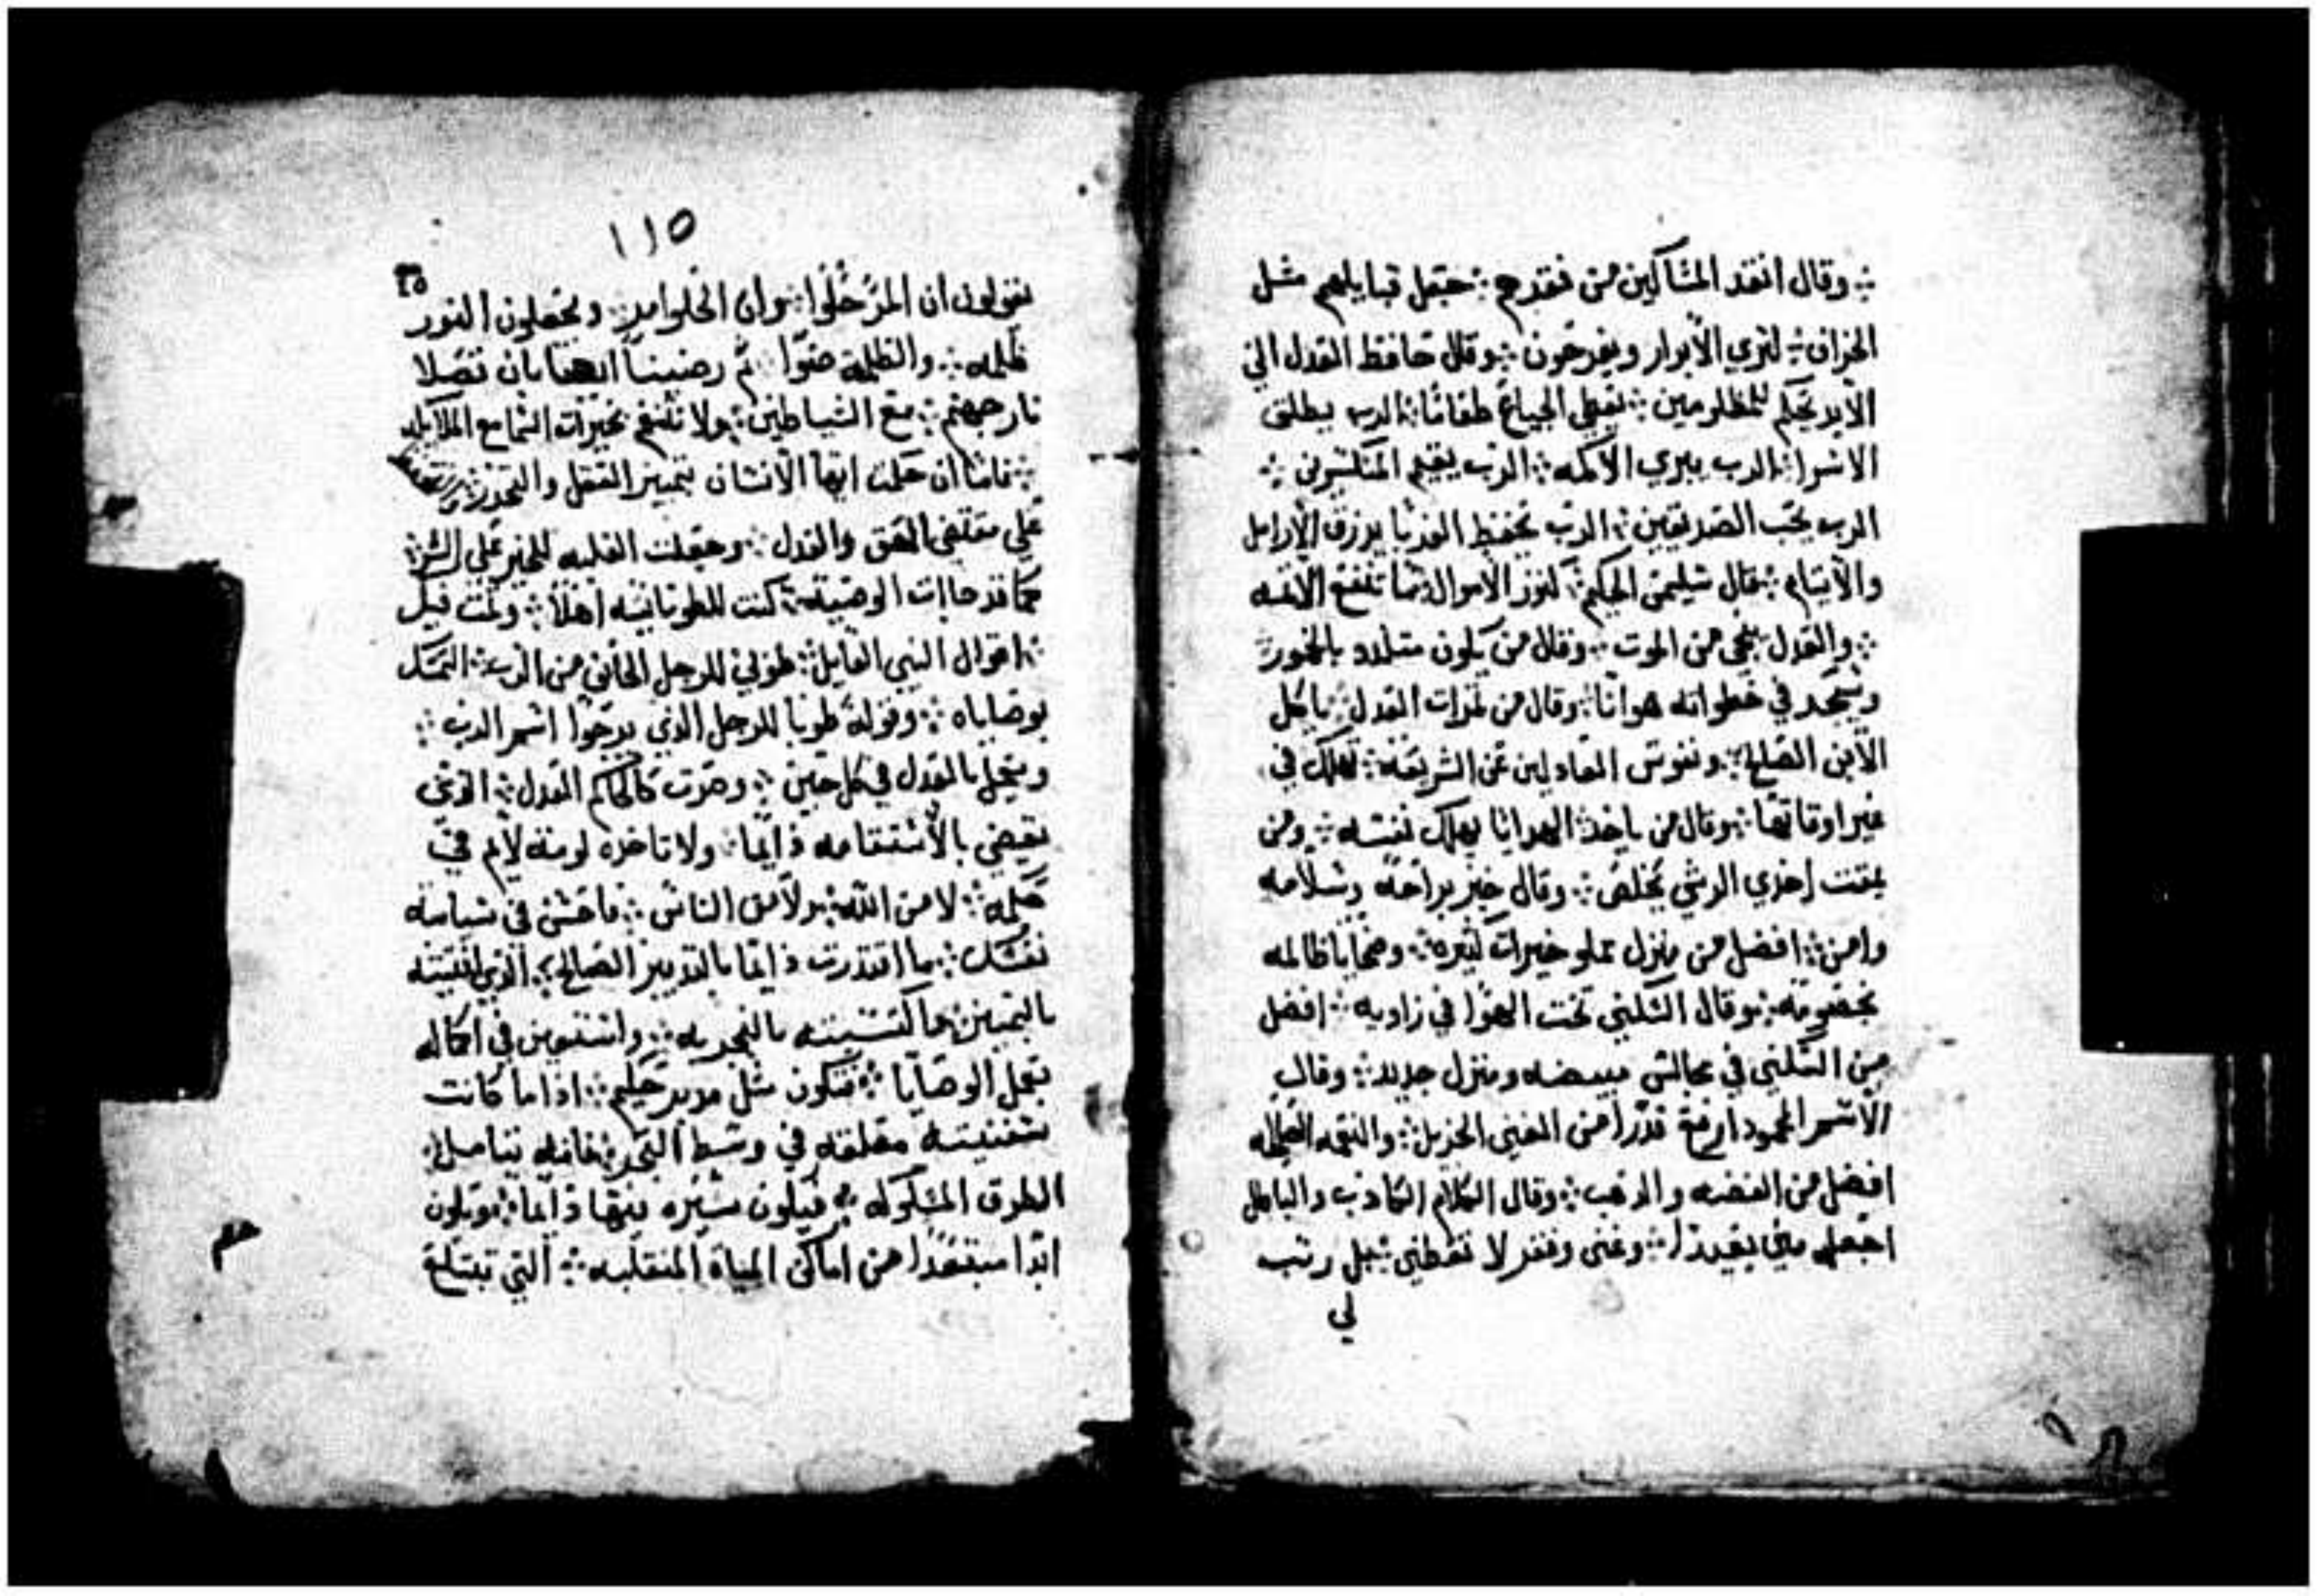 ؞ وقال انقد المساكين من فقرهم ؞ جعل قبايلهم مثل
الخراف ؞ لتري الابرار ويفرحون ؞ وقال حافظ العدل الي
الابد يحكم للمظلومين ؞ يعطي الجياع طعاما ؞ الرب يطلق
الاسرا ؞ الرب يبري الاكمه ؞ الرب يقيم المنكسرين ؞
الرب يحب الصديقين ؞ الرب يحفظ الغربا يرزق الارامل
والايتام ؞ قال سليمن الحكيم ؞ كنوز الاموال تنفع الاتمه
؞ والعدل ينجي من الموت ؞ وقال من يكون متلدد بالخمور
في خطواته هوانا ؞ وقال من تمرات العدل ؞ ياكل
الابن الصالح ؞ ونفوس العادلين عن الشريعه ؞ تهلك في
غير اوقاتها ؞ وقال من ياخد الهدايا يهلك نفسه ؞ ومن
يمقت اخدي الرشي يخلص ؞ وقال خبز براحه وسلامه
وامن ؞ افضل من منزل مملو خيرات كتيره ؞ وضحايا ظالمه
بخصومه ؞ وقال السكني تحت الهوا في زاويه ؞ افضل
من السكني في مجالس مبيضه ومنزل جديد ؞ وقال
الاسم المحمود ارفع قدرا من الغني الجزيل ؞ والنعمه الصالحه
افضل من الفضه والدهب ؞ وقال الكلام الكادب والباطل
اجعله مني بعيدا ؞ وغنى وفقر لا تعطني ؞ بل رتب
لي
١١٥
يقولون ان المر حلوا ؞ وان الحلوا مر ؞ ويجعلون النور
ظلمه ؞ والظلمه ضوا ؞ تم رضينا ايضا بان نصلا
نار جهنم ؞ مع الشياطين ؞ ولا نتنعم بخيرات السما مع الملايكه
؞ فاما ان حكمت ايها الانسان بتمييز العقل والتحرز
علي مقتضي الحق والعدل ؞ وجعلت الغلبه للخير علي الشر ؞
كما قد جاات الوصيه ؞ كنت للطوبانيه اهلا ؞ وتمت فيك
؞ اقوال النبي القايل ؞ طوبي للرجل الخايف من الرب ؞ المتمسك
بوصاياه ؞ وقوله طوبا للرجل الذي يرجوا اسم الرب ؞
ويعمل بالعدل في كل حين ؞ وصرت كالحاكم العدل ؞ الذي
يقضي بالاستقامه دايما ؞ ولا تاخده لومة لايم في
حكمه ؞ لا من الله ؞ ولا من الناس ؞ فاحسن في سياسة
نفسك ؞ ما اقتدرت دايما بالتدبير الصالح ؞ الذي اقتنيته
بالتمييز ؞ واكتسبته بالتجربه ؞ في اكماله
بعمل الوصايا ؞ فتكون مثل مدبر حكيم ؞ ادا ما كانت
سفينته مقلعه في وسط البحر ؞ فانه يتامل
الطرق المسلوكه ؞ فيكون سيره فيها دايما ؞ ويكون
ابدا مبتعدا من اماكن المياه المنقلبه ؞ التي تبتلع